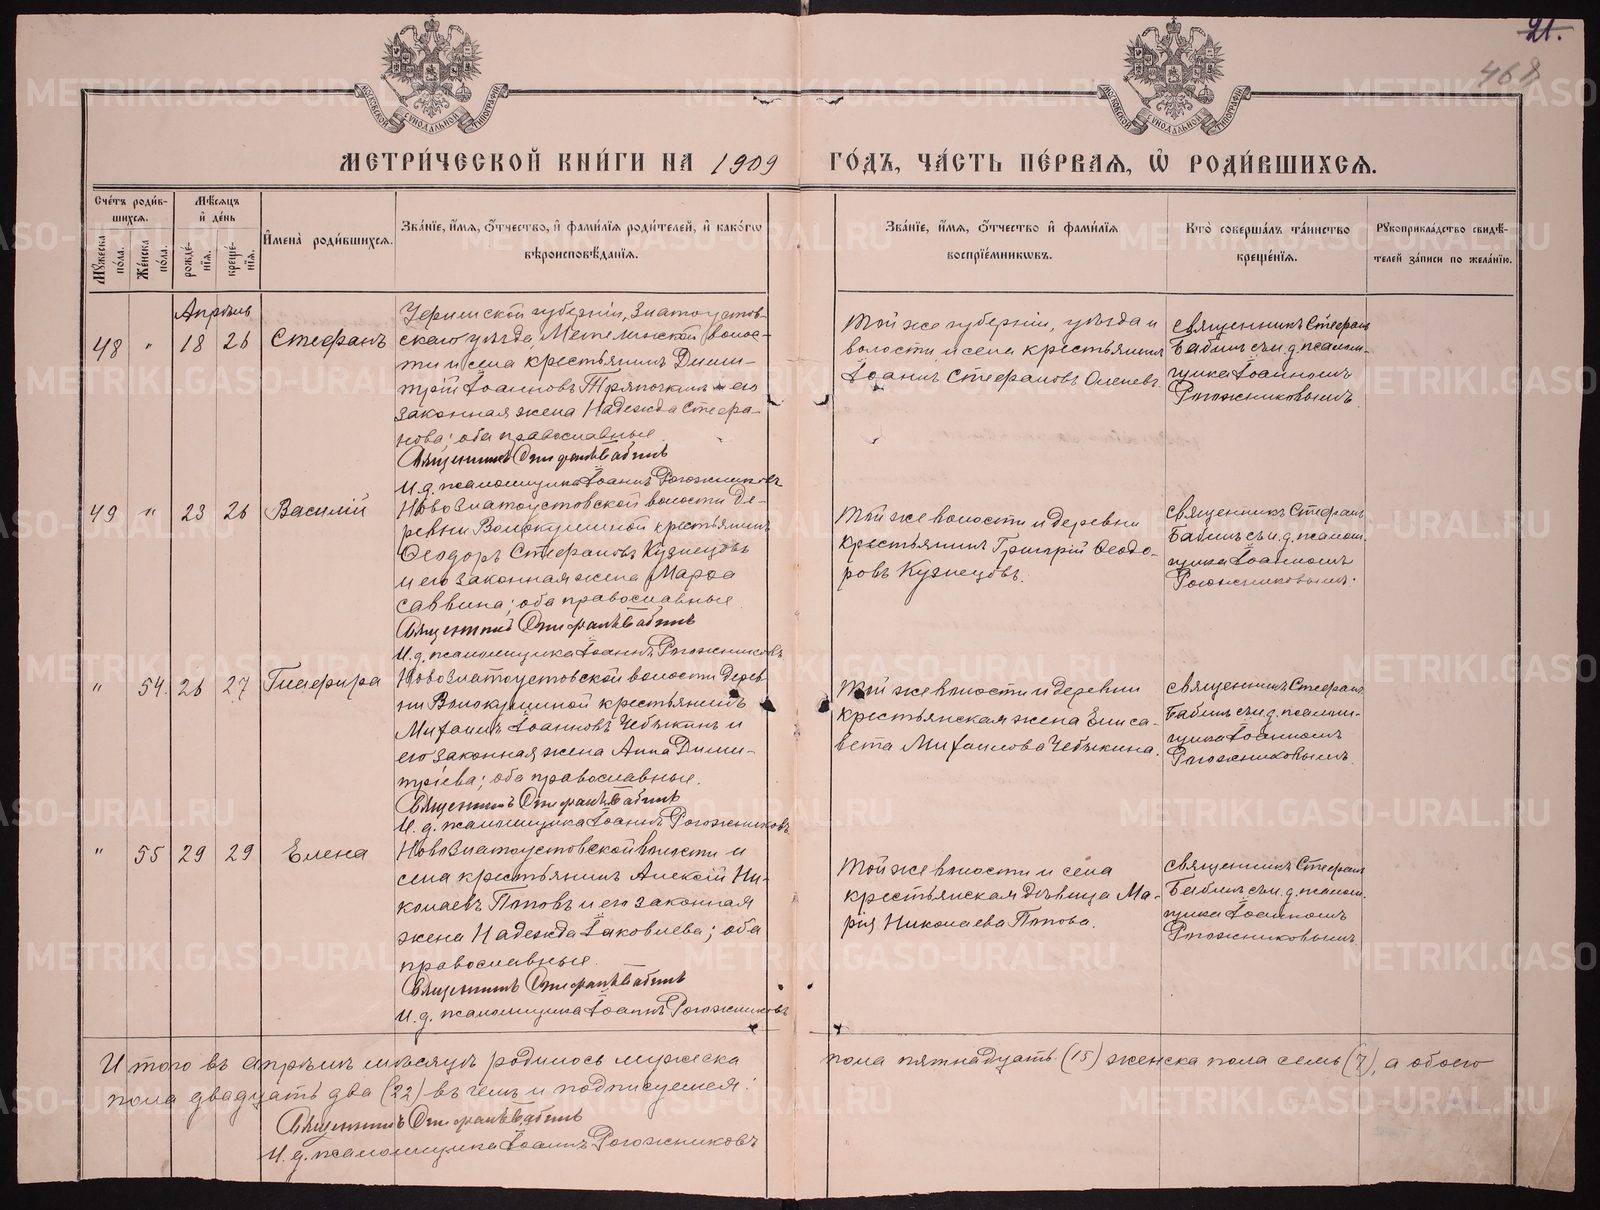 21.
468
МОСКОВСКОЙ СѴНОДАЛЬНОЙ ТИПОГРАФІИ
МОСКОВСКОЙ СѴНОДАЛЬНОЙ ТИПОГРАФІИ
МЕТРИ́ЧЕСКОЙ КНИ́ГИ НА 1909 ГО́ДЪ, ЧА́СТЬ ПЕ́РВАѦ, Ѡ҆ РОДИ́ВШИХСѦ.
Сче́тъ роди́в-
шихсѧ.
Мꙋ́жеска по́ла.
Же́нска по́ла.
Мѣ́сѧцъ и҆ де́нь
рожде́-
нїѧ.
креще́-
нїѧ.
И҆мена̀ роди́вшихсѧ.
Зва́нїе, и҆́мѧ, ѻ҆́тчество, и҆ фами́лїѧ роди́телей, и҆ како́гѡ
вѣроисповѣ́данїѧ.
Зва́нїе, и҆́мѧ, ѻ҆́тчество и҆ фами́лїѧ
воспрїе́мникѡвъ.
Кто̀ соверша́лъ та́инство
креще́нїѧ.
Рꙋкоприкла́дство свидѣ́-
телей за́писи по жела́нїю.
Апрѣль
48 " 18 26 Стефанъ
Уфимской губерніи, Златоустов-
скаго уѣзда, Метелинской волос-
ти и села крестьянинъ Дими-
трій Іоанновъ Тряпочкинъ и его
законная жена Надежда Стефа-
нова; оба православные.
Священникъ Стефанъ Бабинъ
И.д. псаломщика Іоаннъ Рогожниковъ
Той же губерніи, уѣзда и
волости и села крестьянинъ
Іоаннъ Стефановъ Оленевъ.
священникъ Стефанъ
Бабинъ съ и.д. псалом-
щика Іоанномъ
Рогожниковымъ.
49 " 23 26 Василій
Ново Златоустовской волости де-
ревни Волокушиной крестьянинъ
Ѳеодоръ Стефановъ Кузнецовъ
и его законная жена Марѳа
Саввина; оба православные.
Священникъ Стефанъ Бабинъ
И.д. псаломщика Іоаннъ Рогожниковъ
Той же волости и деревни
крестьянинъ Григорій Ѳеодо-
ровъ Кузнецовъ.
священникъ Стефанъ
Бабинъ съ и.д. псалом-
щика Іоанномъ
Рогожниковымъ.
" 54. 26 27 Глафира
Ново Златоустовской волости дерев-
ни Волокушиной крестьянинъ
Михаилъ Іоанновъ Чебыкинъ и
его законная жена Анна Дими-
тріева; оба православные.
Священникъ Стефанъ Бабинъ
И.д. псаломщика Іоаннъ Рогожниковъ
Той же волости и деревни
крестьянская жена Елиса-
вета Михаилова Чебыкина.
священникъ Стефанъ
Бабинъ съ и.д. псалом-
щика Іоанномъ
Рогожниковымъ.
" 55 29 29 Елена
Ново Златоустовской волости и
села крестьянинъ Алексій Ни-
колаевъ Поповъ и его законная
жена Надежда Іаковлева; оба
православные.
Священникъ Стефанъ Бабинъ
И.д. псаломщика Іоаннъ Рогожниковъ
Той же волости и села
крестьянская дѣвица Ма-
рія Николаева Попова.
священникъ Стефанъ
Бабинъ съ и.д. псалом-
щика Іоанномъ
Рогожниковымъ.
Итого въ апрѣлѣ мѣсяцѣ родилось мужеска пола пятнадцать (15) женска пола семь (7), а обоего
пола двадцать два (22) въ чемъ и подписуемся:
Священникъ Стефанъ Бабинъ
И.д. псаломщика Іоаннъ Рогожниковъ
METRIKI.GASO-URAL.RU